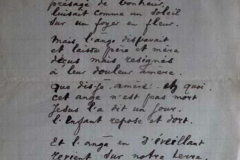 présage de bonheur
luisait comme un soleil
sur un foyer en fleur.
Mais l'ange disparait
et laisse père et mère
deux mais resignés
à leur douleur amère.
Que dis-je amère et quoi
cet ange n'est pas mort
Jesus l'a dit un jour.
l'enfant repose et dort.
Et l'ange en s'éveillant
revient sur notre terre